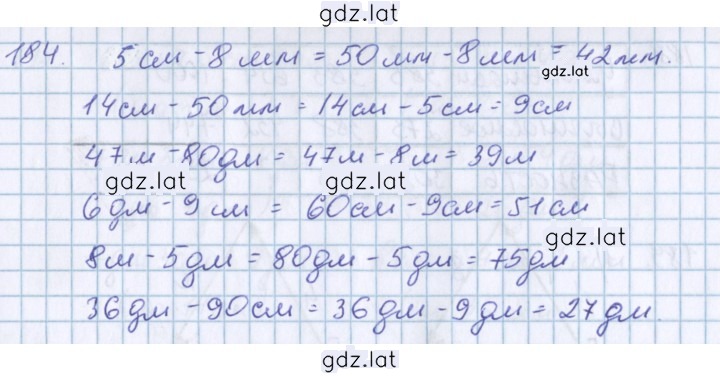 gdz.lat
184. 5 см - 8 мм = 50 мм - 8 мм = 42 мм.
gdz.lat
14 см - 50 мм = 14 см - 5 см = 9 см
47 м - 80 дм = 47 м - 8 м = 39 м
gdz.lat
6 дм - 9 см = 60 см - 9 см = 51 см
gdz.lat
8 м - 5 дм = 80 дм - 5 дм = 75 дм
36 дм - 90 см = 36 дм - 9 дм = 27 дм.
gdz.lat